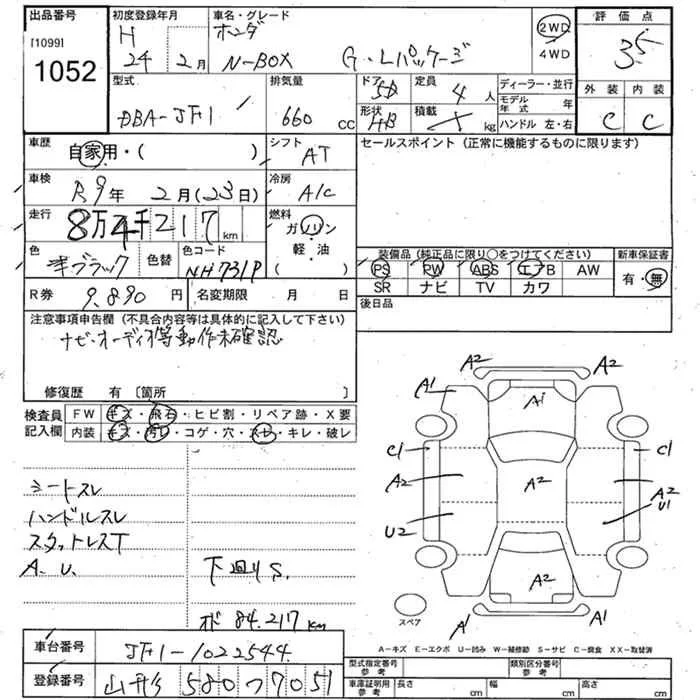 出品番号 初度登録年月 車名・グレード 評価点
[1099] H ホンダ 2WD 3.5
1052 24 2月 N-BOX G・Lパッケージ 4WD
型式 排気量 ドア 5D 定員 4人 ディーラー・並行 外装 内装
DBA-JF1 660cc 形状 HB 積載 kg モデル年式 年 C C
ハンドル 左・右
車歴 自家用・( ) シフト AT セールスポイント (正常に機能するものに限ります)
車検 R9年 2月(23日) 冷房 A/C
走行 8万4千217km 燃料 ガソリン
軽・油
( )
色 ブラック 色替 色コード NH731P 装備品(純正品に限り○をつけてください) 新車保証書
PS PW ABS エアB AW 有・無
SR ナビ TV カワ
R券 9,890円 名変期限 月 日 後日品
注意事項申告欄 (不具合内容等は具体的に記入して下さい)
ナビ・オーディオ等動作未確認
修復歴 有 〔箇所 〕
検査員 FW キズ・飛石・ヒビ割・リペア跡・X要
記入欄 内装 キズ・汚レ・コゲ・穴・スレ・キレ・破レ
A2 A2
A1 A1
C1 C1
A2 A2 A2
U1
U2
A2
A1 A1
スペア
シートスレ
ハンドルスレ
スタットレスT
A.U. 下廻りS.
オド 84,217km
A−キズ E−エクボ U−凹み W−補修跡 S−サビ C−腐食 XX−取替済
車台番号 JF1-1022544
登録番号 山形 580 つ 7051
型式指定番号 参考 類別区分番号 参考
車庫証明用 参考 長さ cm 幅 cm 高さ cm